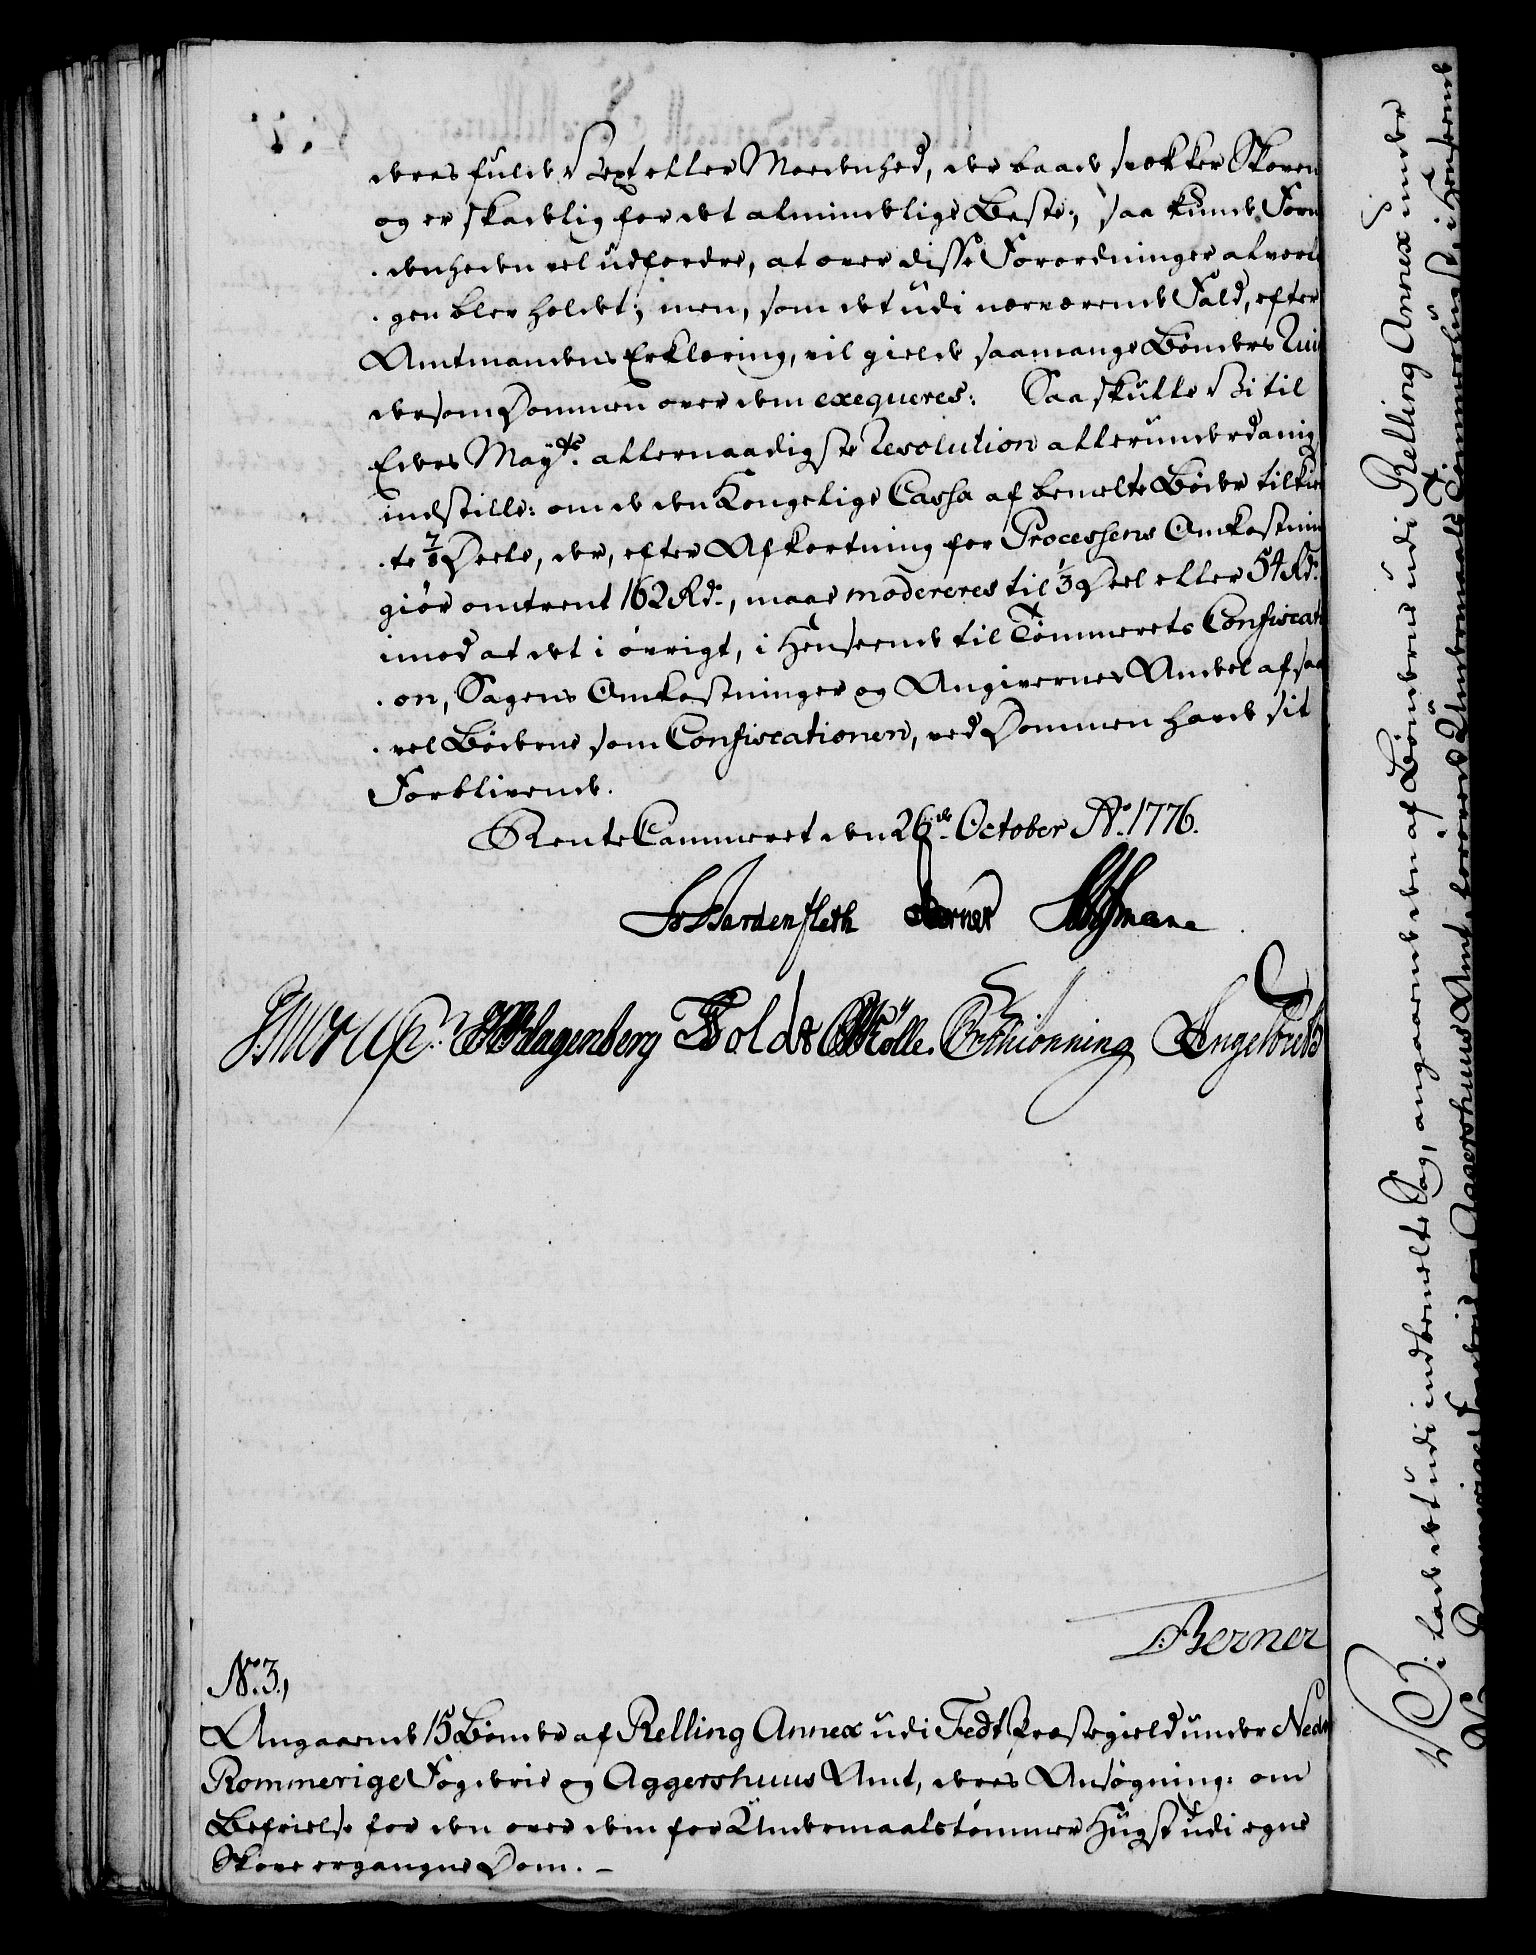 deres fulde Vext eller Moedenhed, der baade svækker Skoven
og er skadelig for det almindelige Beste; saa kunde Forn
denheden vel udfordre, at over disse Forordninger alvorli
gen blev holdet; men, som det udi nærværende Fald, efter
Amtmandens Erklæring, vil gielde saamange Bønders Rui
dersom Dommen over dem exeqveres: Saa skulle Vi til
Eders Mayts. allernaadigste Resolution allerunderdanig
indstille: om de den Kongelige Cassa af bemelte Bøder tilkien
te 7/8 Deele, der, efter Afkortning for Processens Omkostnin
giør omtrent 162 Rd., maae modereres til 1/3 Deel eller 54 Rd.
imod at det i øvrigt, i Henseende til Tømmerets Confiscati
on, Sagens Omkostninger og Angivernes Andeel af saa
vel Bøderne som Confiscationen, ved Dommen havde sit
Forblivende.
RenteCammeret den 26de October Ao. 1776.
Wardenfleth Berner
Klagenberg Holdt Mølle. Schionning Engelbreth
Berner
No. 3.,
Angaaende 15 Bønder af Relling Annex udi Fedt Præstegield under Neder
Rommerige Fogderie og Aggershuus Amt, deres Ansøgning: om
Befrielse for den over dem for Undermaalstømmer Hugst udi egne
Skove ergangne Dom. –
Vi lade det udi indbemelte Sag, angaaende den af Bønderne udi Relling Annex under
Neder Rommeriges Fogderie og Aggershuus Amt, forøvede Undermaals Tømmerhugst, i Henseende